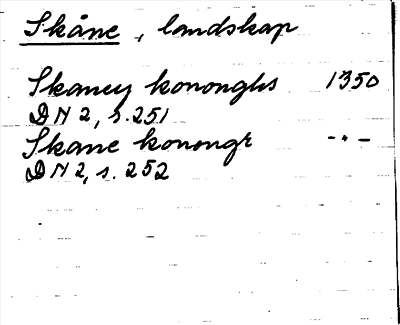 Skåne, landskap
Skaney kononghs 1350
DN 2, s. 251
Skane konongr -"-
DN 2, s. 252